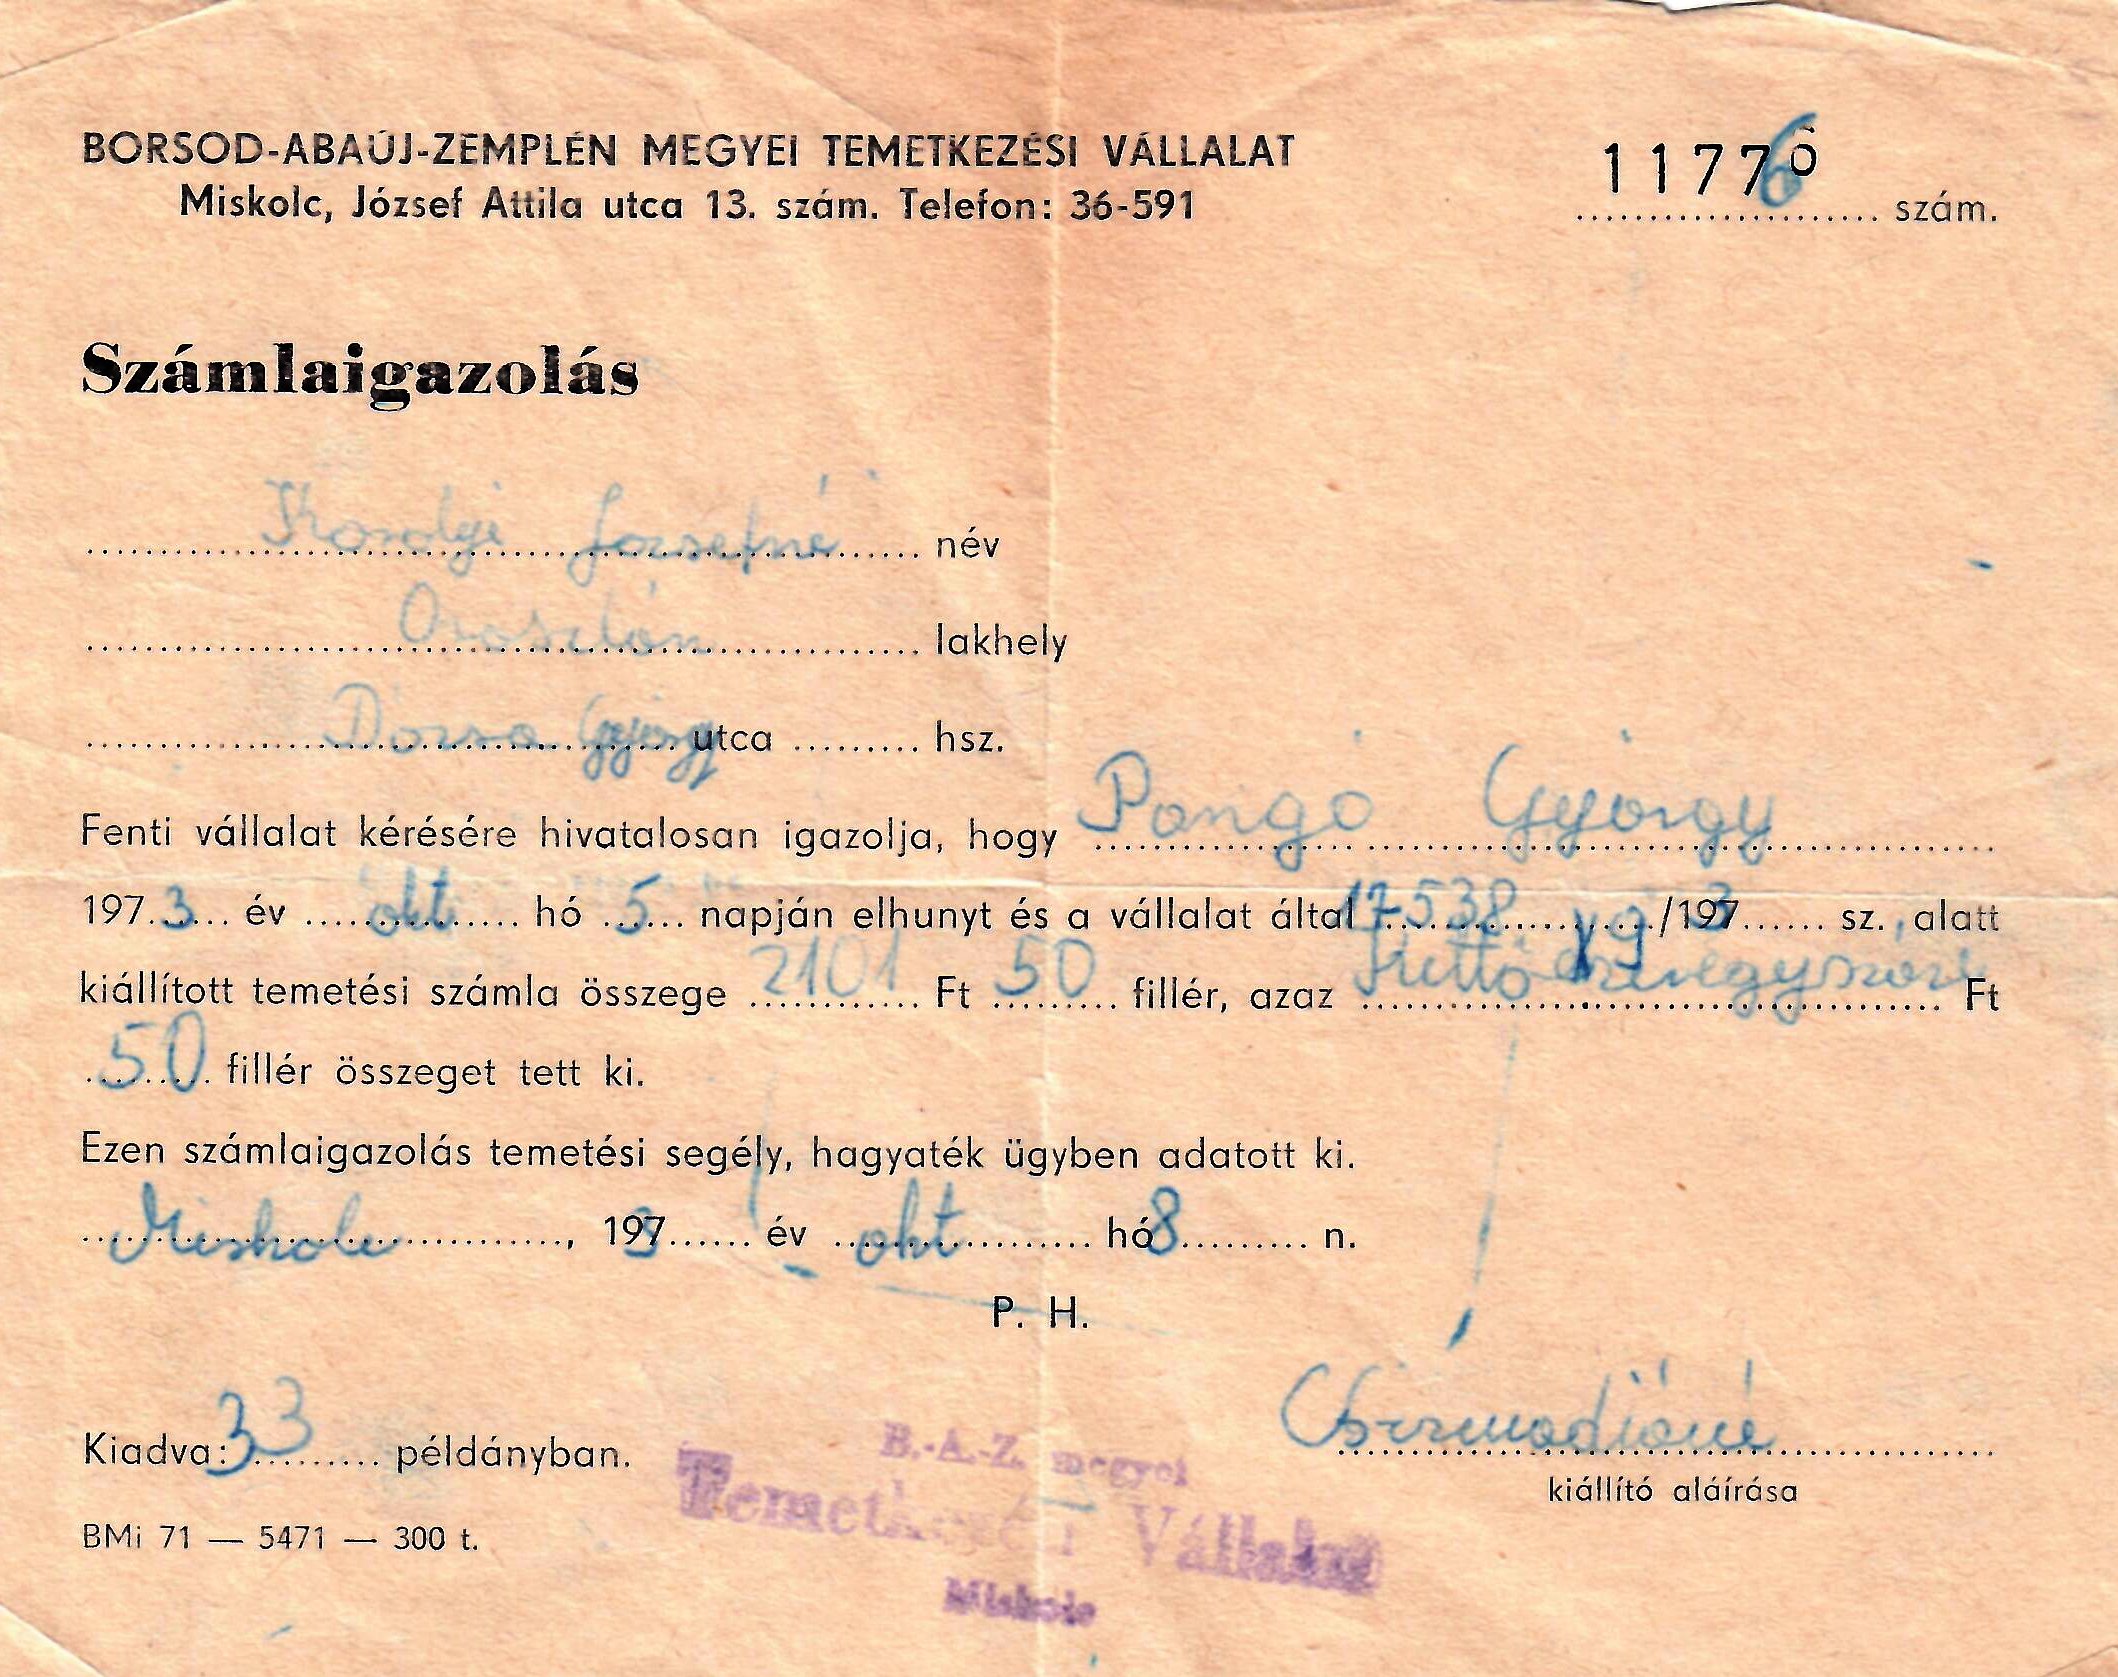 BORSOD-ABAÚJ-ZEMPLÉN MEGYEI TEMETKEZÉSI VÁLLALAT
Miskolc, József Attila utca 13. szám. Telefon: 36-591
11776 szám.
Számlaigazolás
Józsefné név
Oroszlán lakhely
Dózsa György utca ......... hsz.
Fenti vállalat kérésére hivatalosan igazolja, hogy Pongó György
1973 év okt hó 5 napján elhunyt és a vállalat által 17538 /1973 sz. alatt
kiállított temetési számla összege 2101 Ft 50 fillér, azaz Kettőezeregyszáz Ft
50 fillér összeget tett ki.
Ezen számlaigazolás temetési segély, hagyaték ügyben adatott ki.
Miskolc, 1973 év okt hó 8 n.
P. H.
Kiadva: 3 példányban.
B.-A.-Z. megyei
Temetkezési Vállalat
Miskolc
kiállító aláírása
BMi 71 — 5471 — 300 t.